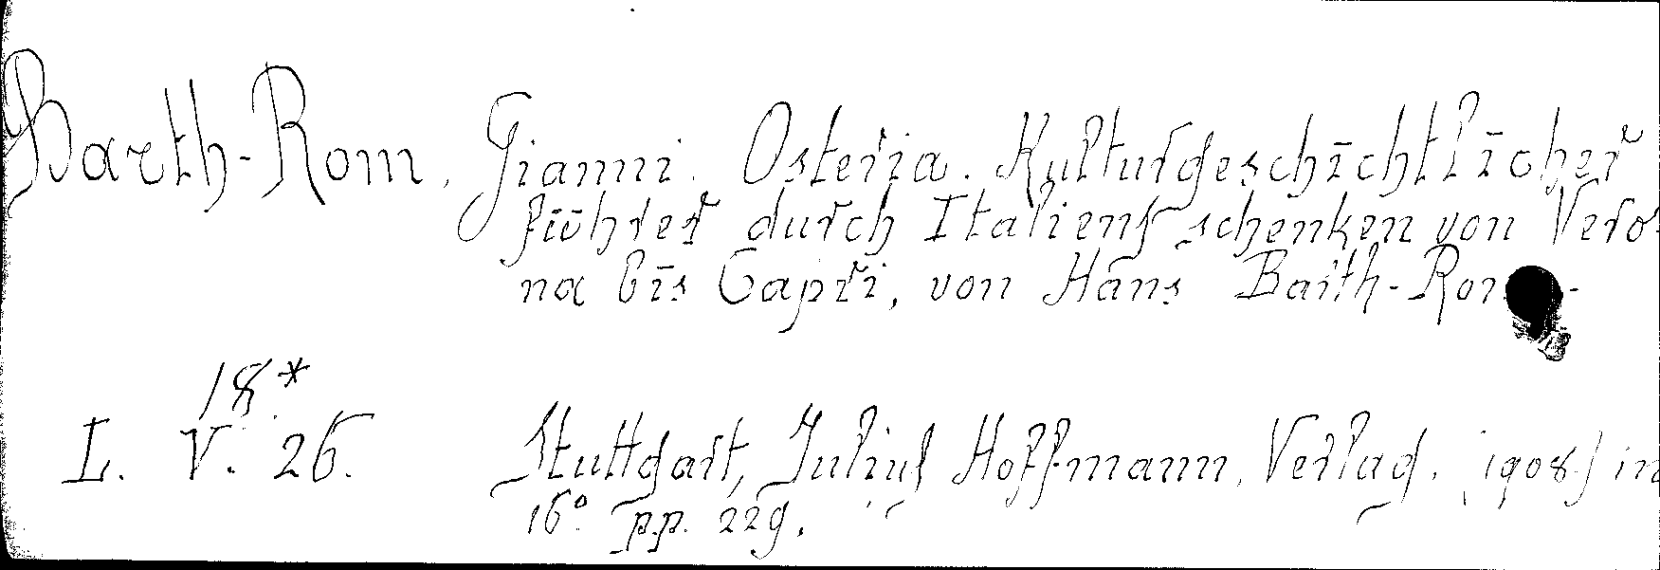 Barth-Rom, Gianni. Osteria. Kulturgeschichtlicher
führer durch Italiens schenken von Vero-
na bis Capri, von Hans Barth-Rom.-
18*
L. V. 26. Stuttgart, Julius Hoffmann, Verlag. (1908.) in
16° pp. 229.